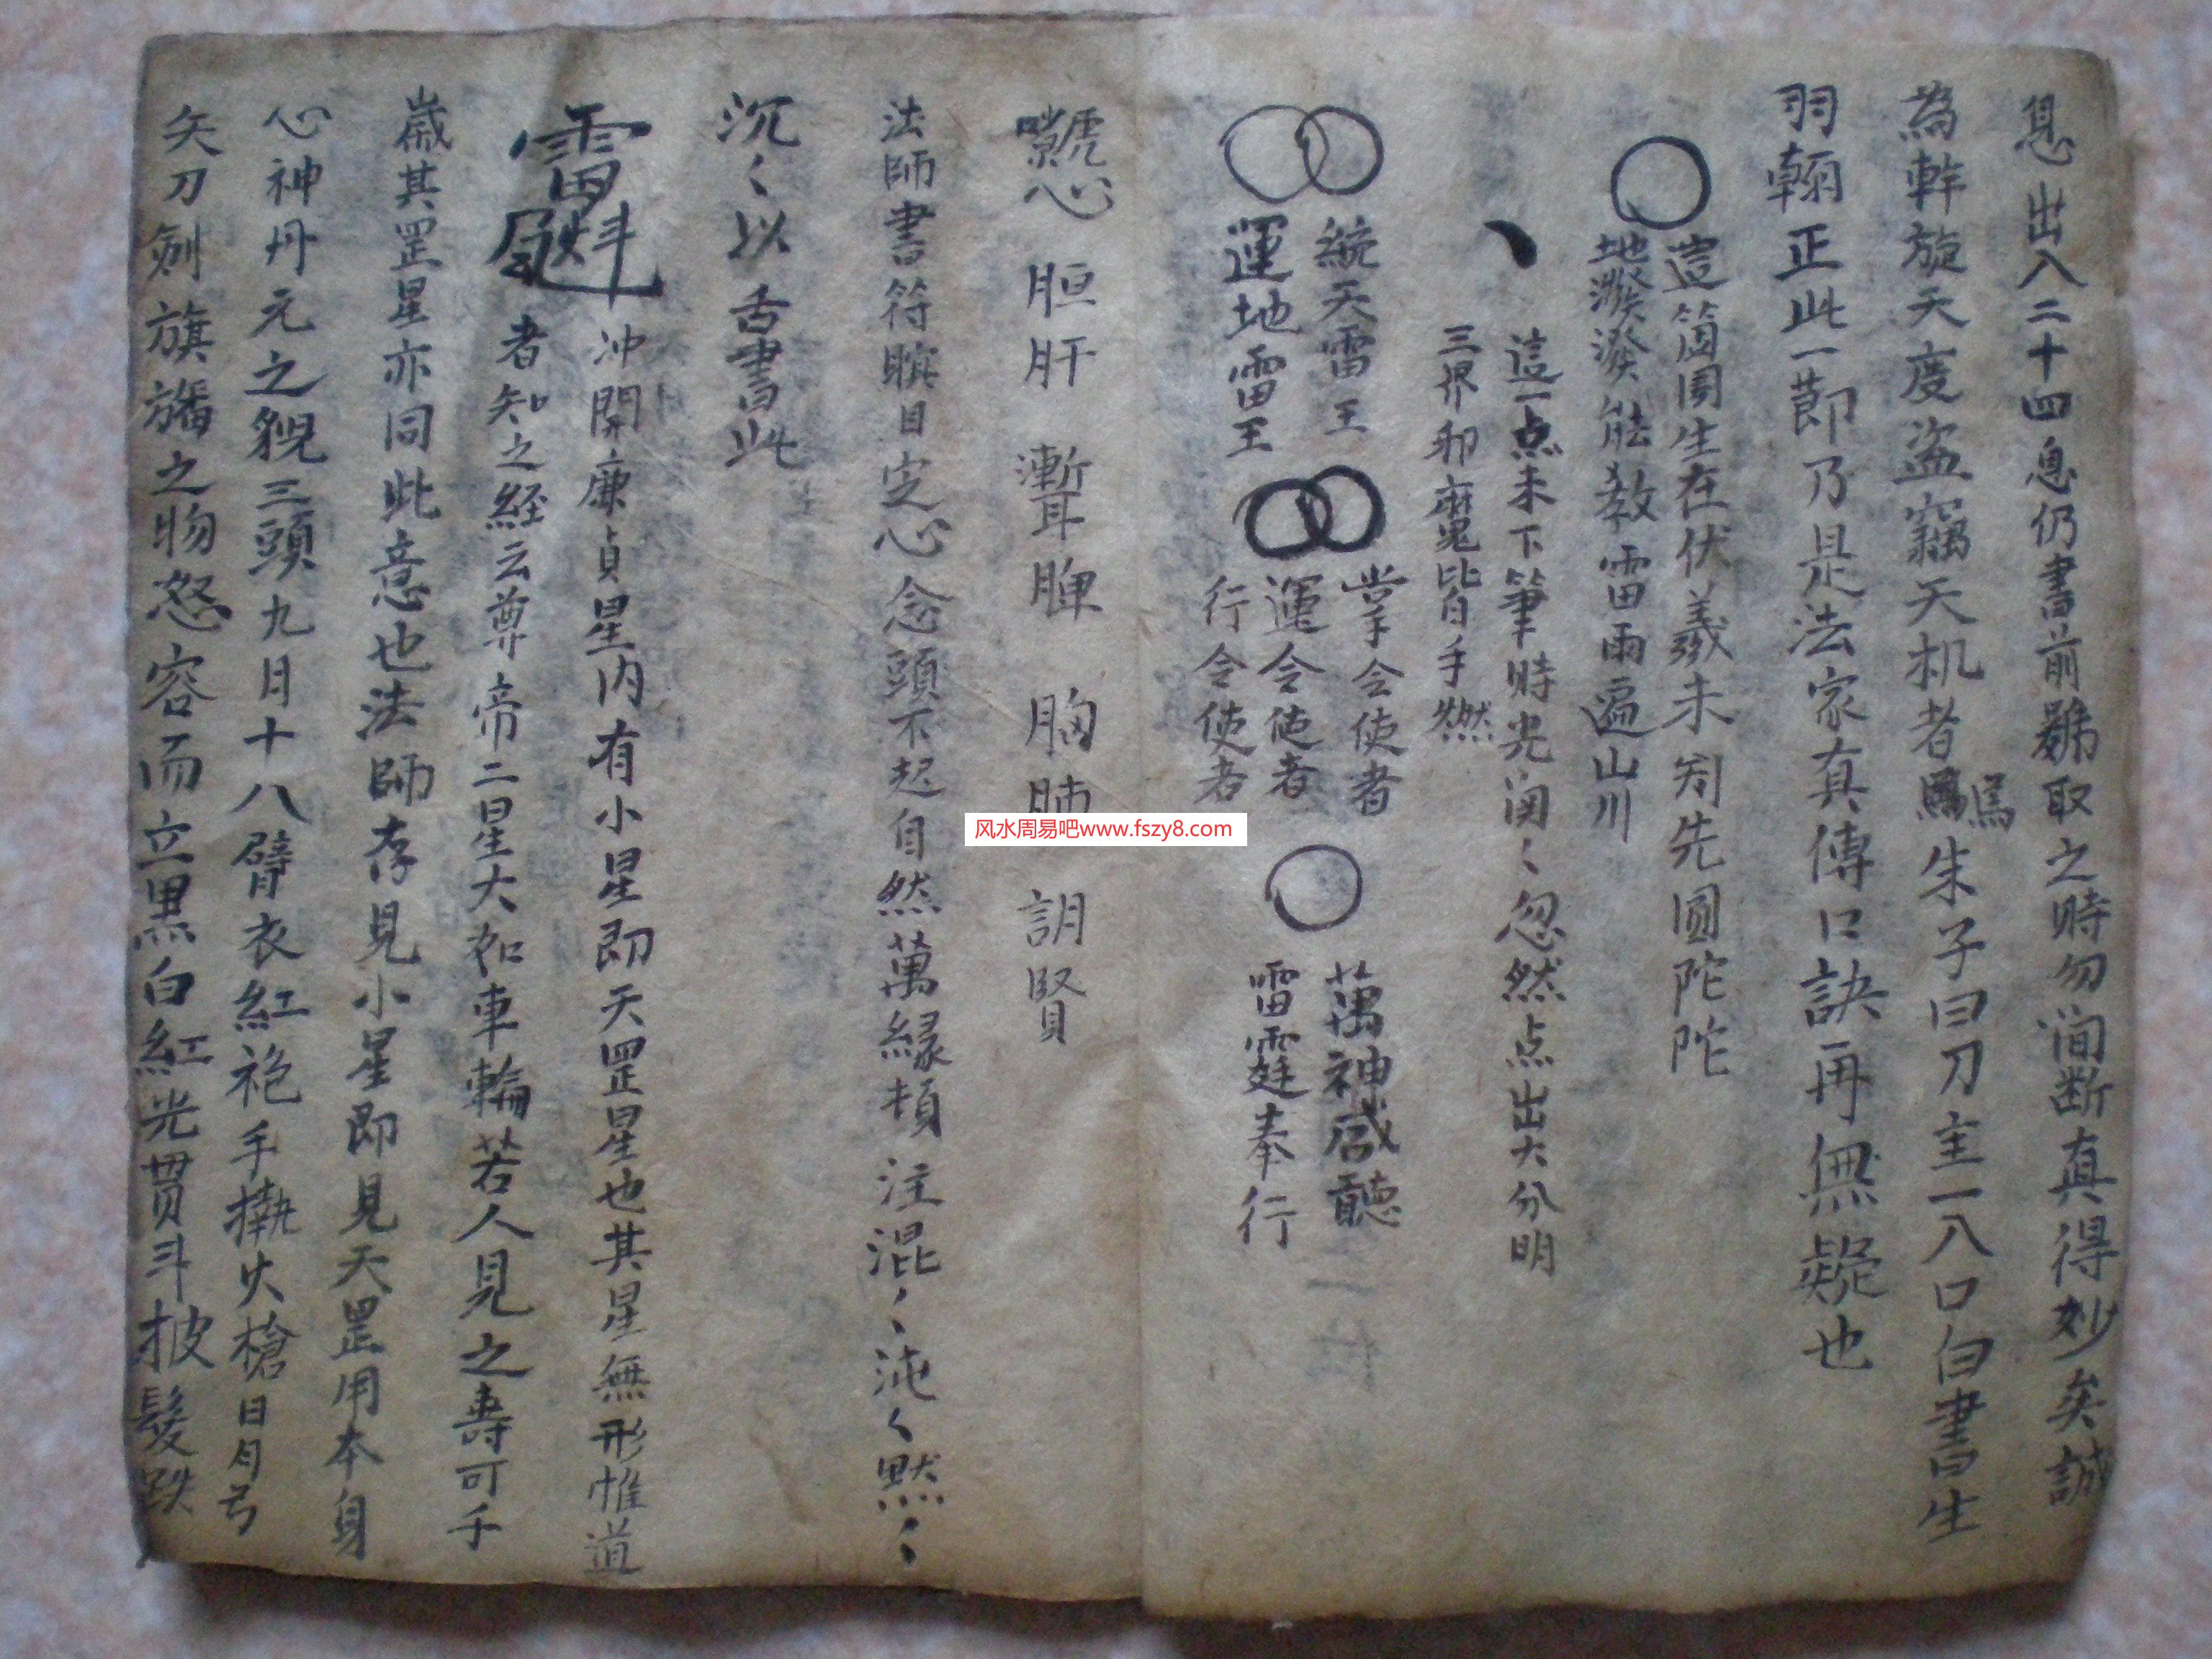 息出入二十四息仍書前號取之時勿間断真得妙矣誠
為斡旋天度盗竊天机者焉朱子曰刀圭一入口白書生
羽翰正此一節乃是法家真傳口訣再無疑也
這箇圈生在伏羲未判先圓陀陀
地潑潑能教雷雨遍山川
這一点未下筆時光閃々忽然点出大分明
三界邪魔皆手燃
統天雷王
運地雷王
掌令使者
運令使者
行令使者
萬神咸聽
雷霆奉行
胆肝 脾 胸肺
賢
法師書符瞑目定心念頭不起自然萬緣頓注混々沌々黙々
沉々以舌書此
冲開廉貞星内有小星即天罡星也其星無形惟道
者知之経云尊帝二星大如車輪若人見之壽可千
歲其罡星亦同此意也法師存見小星即見天罡用本身
心神丹元之貌三頭九目十八臂衣紅袍手執火槍日月弓
矢刀劍旗旛之物怒容而立黒白紅光貫斗披髮跌
风水周易吧www.fszy8.com